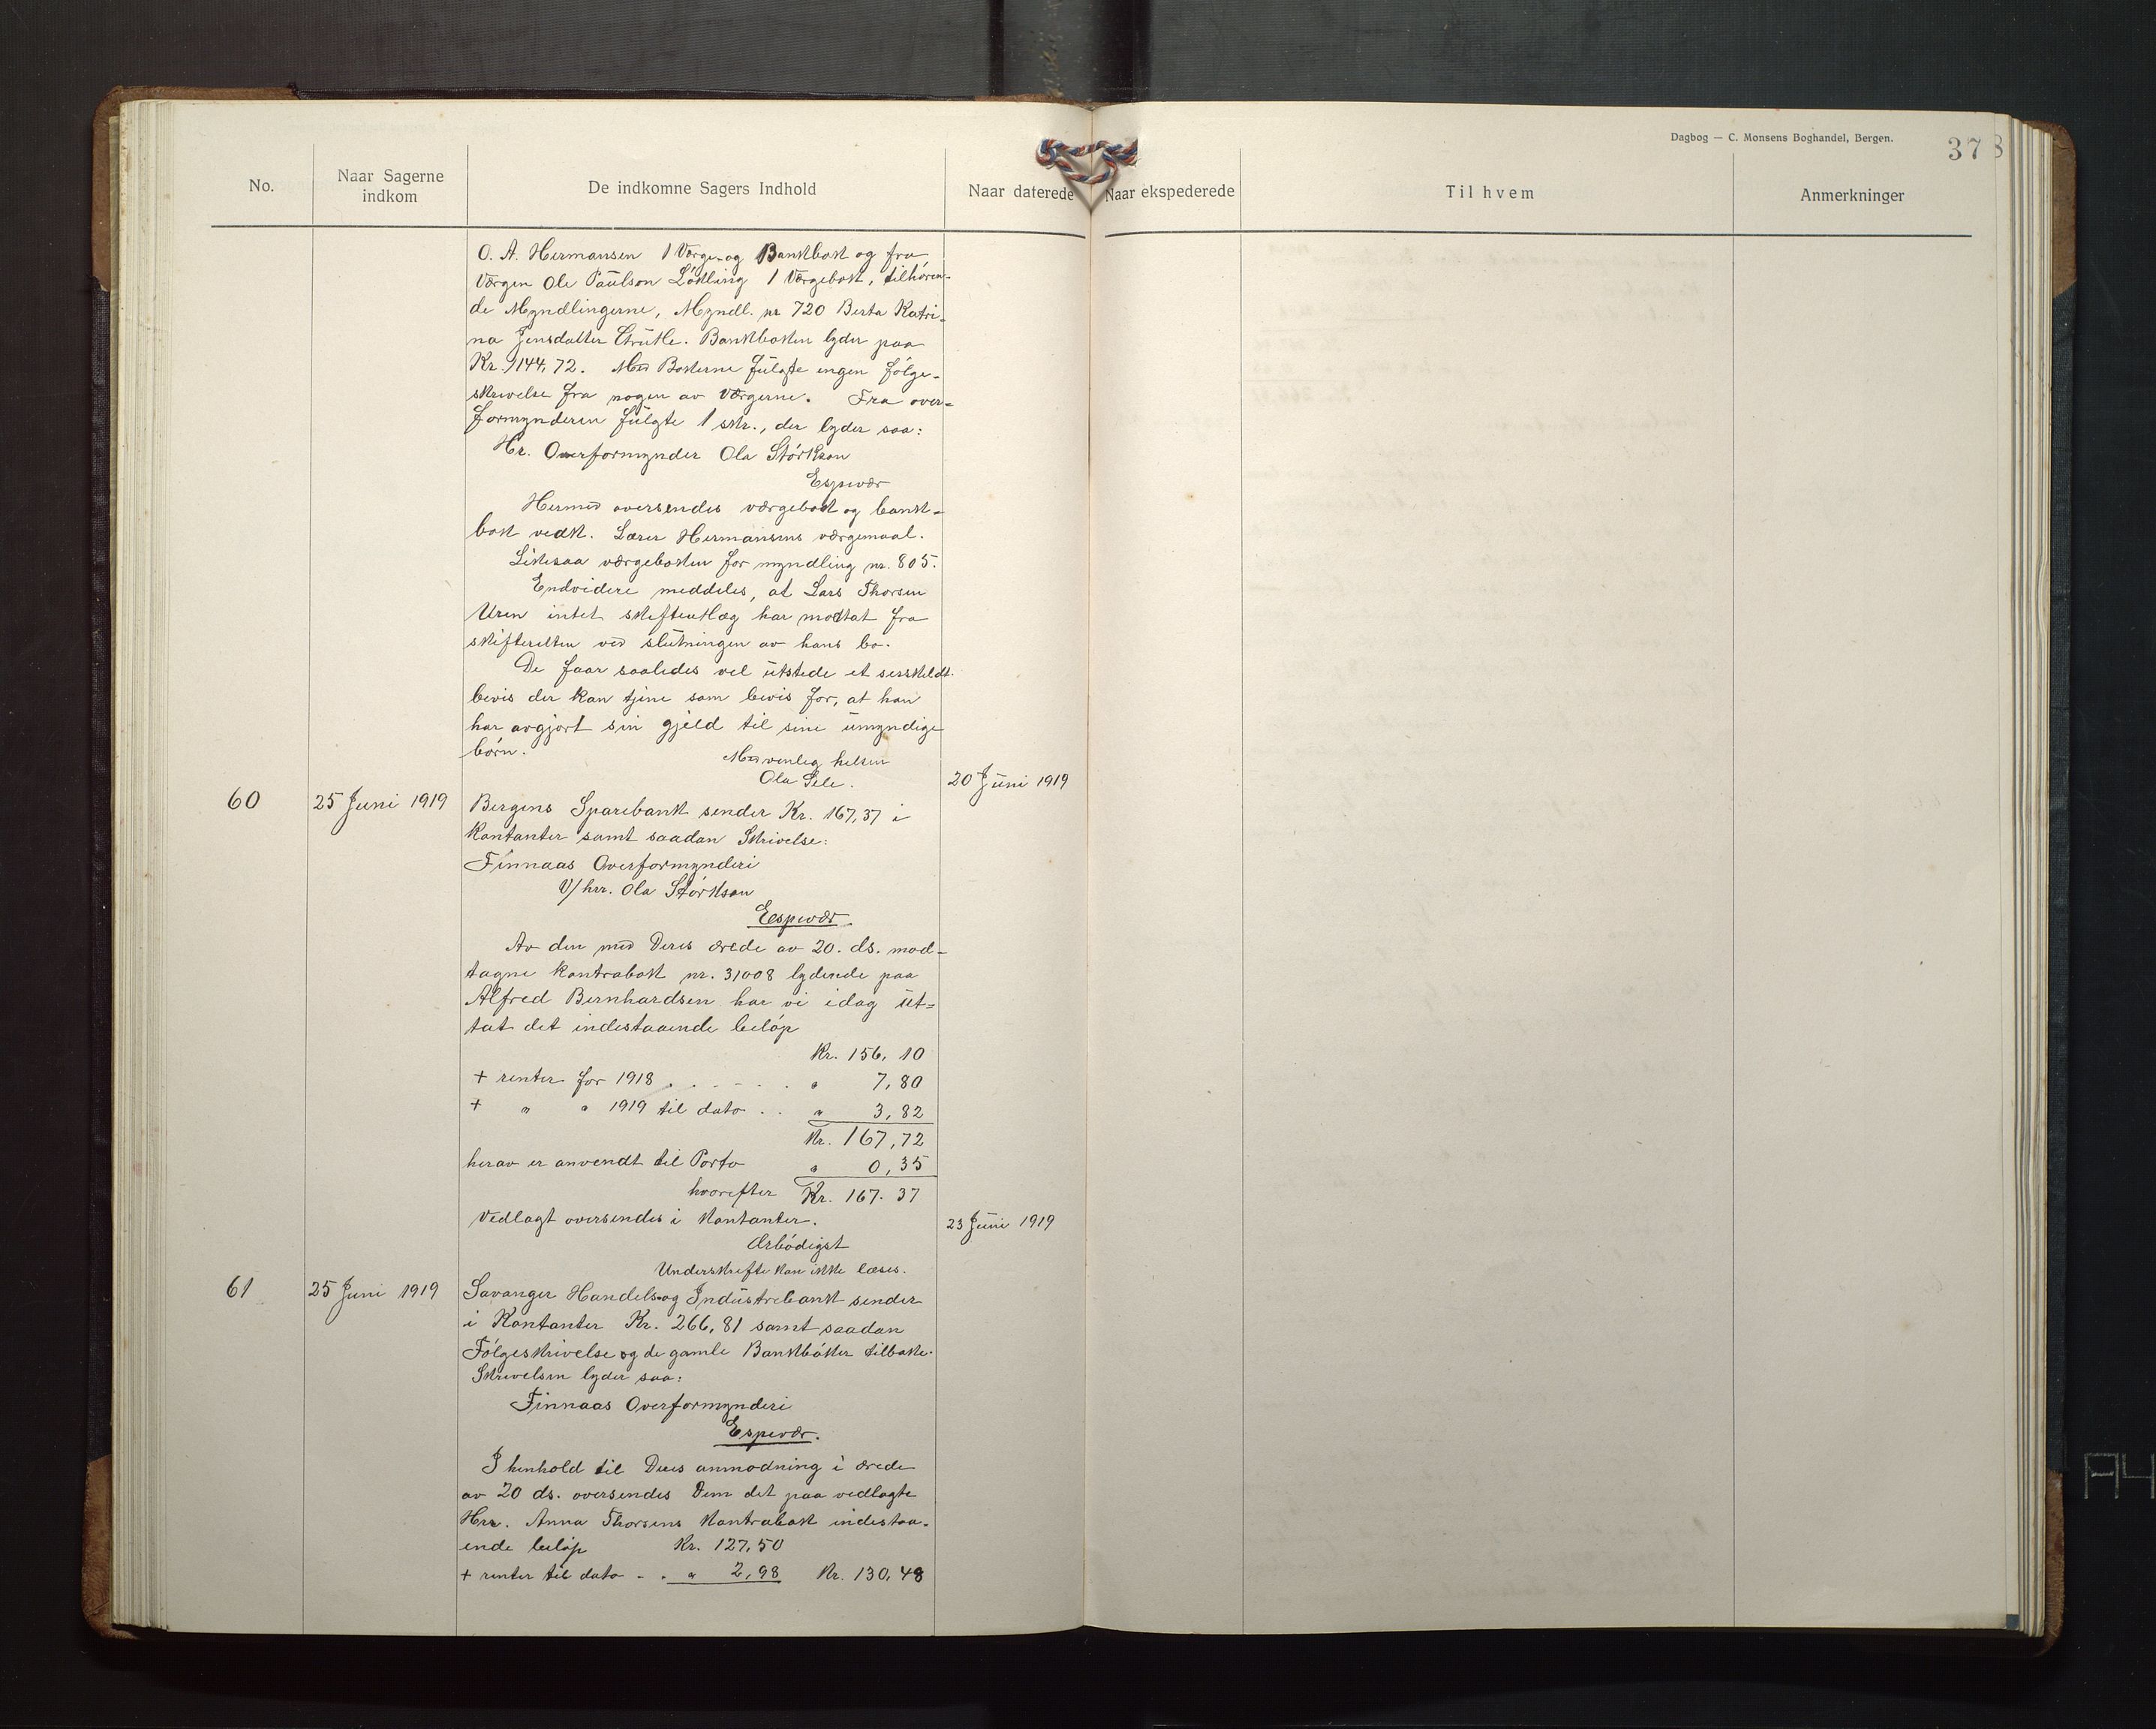 Dagbog — C. Monsens Boghandel, Bergen.
37
No.
Naar Sagerne indkom
De indkomne Sagers Indhold
Naar daterede
Naar ekspederede
Til hvem
Anmerkninger
O. A. Hermansen 1 Værge- og Bankbok og fra
Værgen Ole Paulson Lökling 1 Værgebok, tilhören-
de Myndlingerne, Myndl. nr 720 Berta Katri-
na Jensdatter Grutle. Bankboken lyder paa
Kr. 1144,72. Med Bøkerne fulgte ingen følge-
skrivelse fra nogen av Værgerne. Fra over-
formynderen fulgte 1 skr., der lyder saa:
Hr. Overformynder Ola Störkson
Espevær
Hermed oversendes værgebok og bank-
bok vedk. Lærer Hermansens værgemaal.
Likesaa værgeboken for myndling nr. 805.
Endvidere meddeles, at Lars Thorsen
Uren intet skifteutlæg har modtat fra
skifteretten ved slutningen av hans bo.
De faar saaledes vel utstede et særskildt
bevis der kan tjene som bevis for, at han
har avgjort sin gjeld til sine umyndige
börn.
Med venleg helsen
Ola Sele.
20 Juni 1919
60
25 Juni 1919
Bergens Sparebank sender Kr. 167,37 i
Kontanter samt saadan Skrivelse:
Finnaas Overformynderi
V/ hrr. Ola Störkson
Espevær.
Av den med Deres ærede av 20. ds. mod-
tagne kontrabok nr. 31008 lydende paa
Alfred Bernhardsen har vi idag ut-
tat det indestaaende belöp
Kr. 156,10
+ renter for 1918 . . . . . . " 7,80
+ " " 1919 til dato . . " 3,82
Kr. 167,72
herav er anvendt til Porto " 0,35
hvorefter Kr. 167.37
Vedlagt oversendes i Kontanter.
23 Juni 1919
Ærbödigst
Underskrifte kan ikke læses.
61
25 Juni 1919
Savanger Handels- og Industrebank sender
i Kontanter Kr. 266,81 samt saadan
Fölgeskrivelse og de gamle Bankböker tilbake.
Skrivelsen lyder saa:
Finnaas Overformynderi
Espevær.
I henhold til Deres anmodning i ærede
av 20 ds. oversendes Dem det paa vedlagte
Hrr. Anna Thorsens Kontrabok indestaa-
ende belöp Kr. 127,50
+ renter til dato - . " 2,98 Kr. 130,48